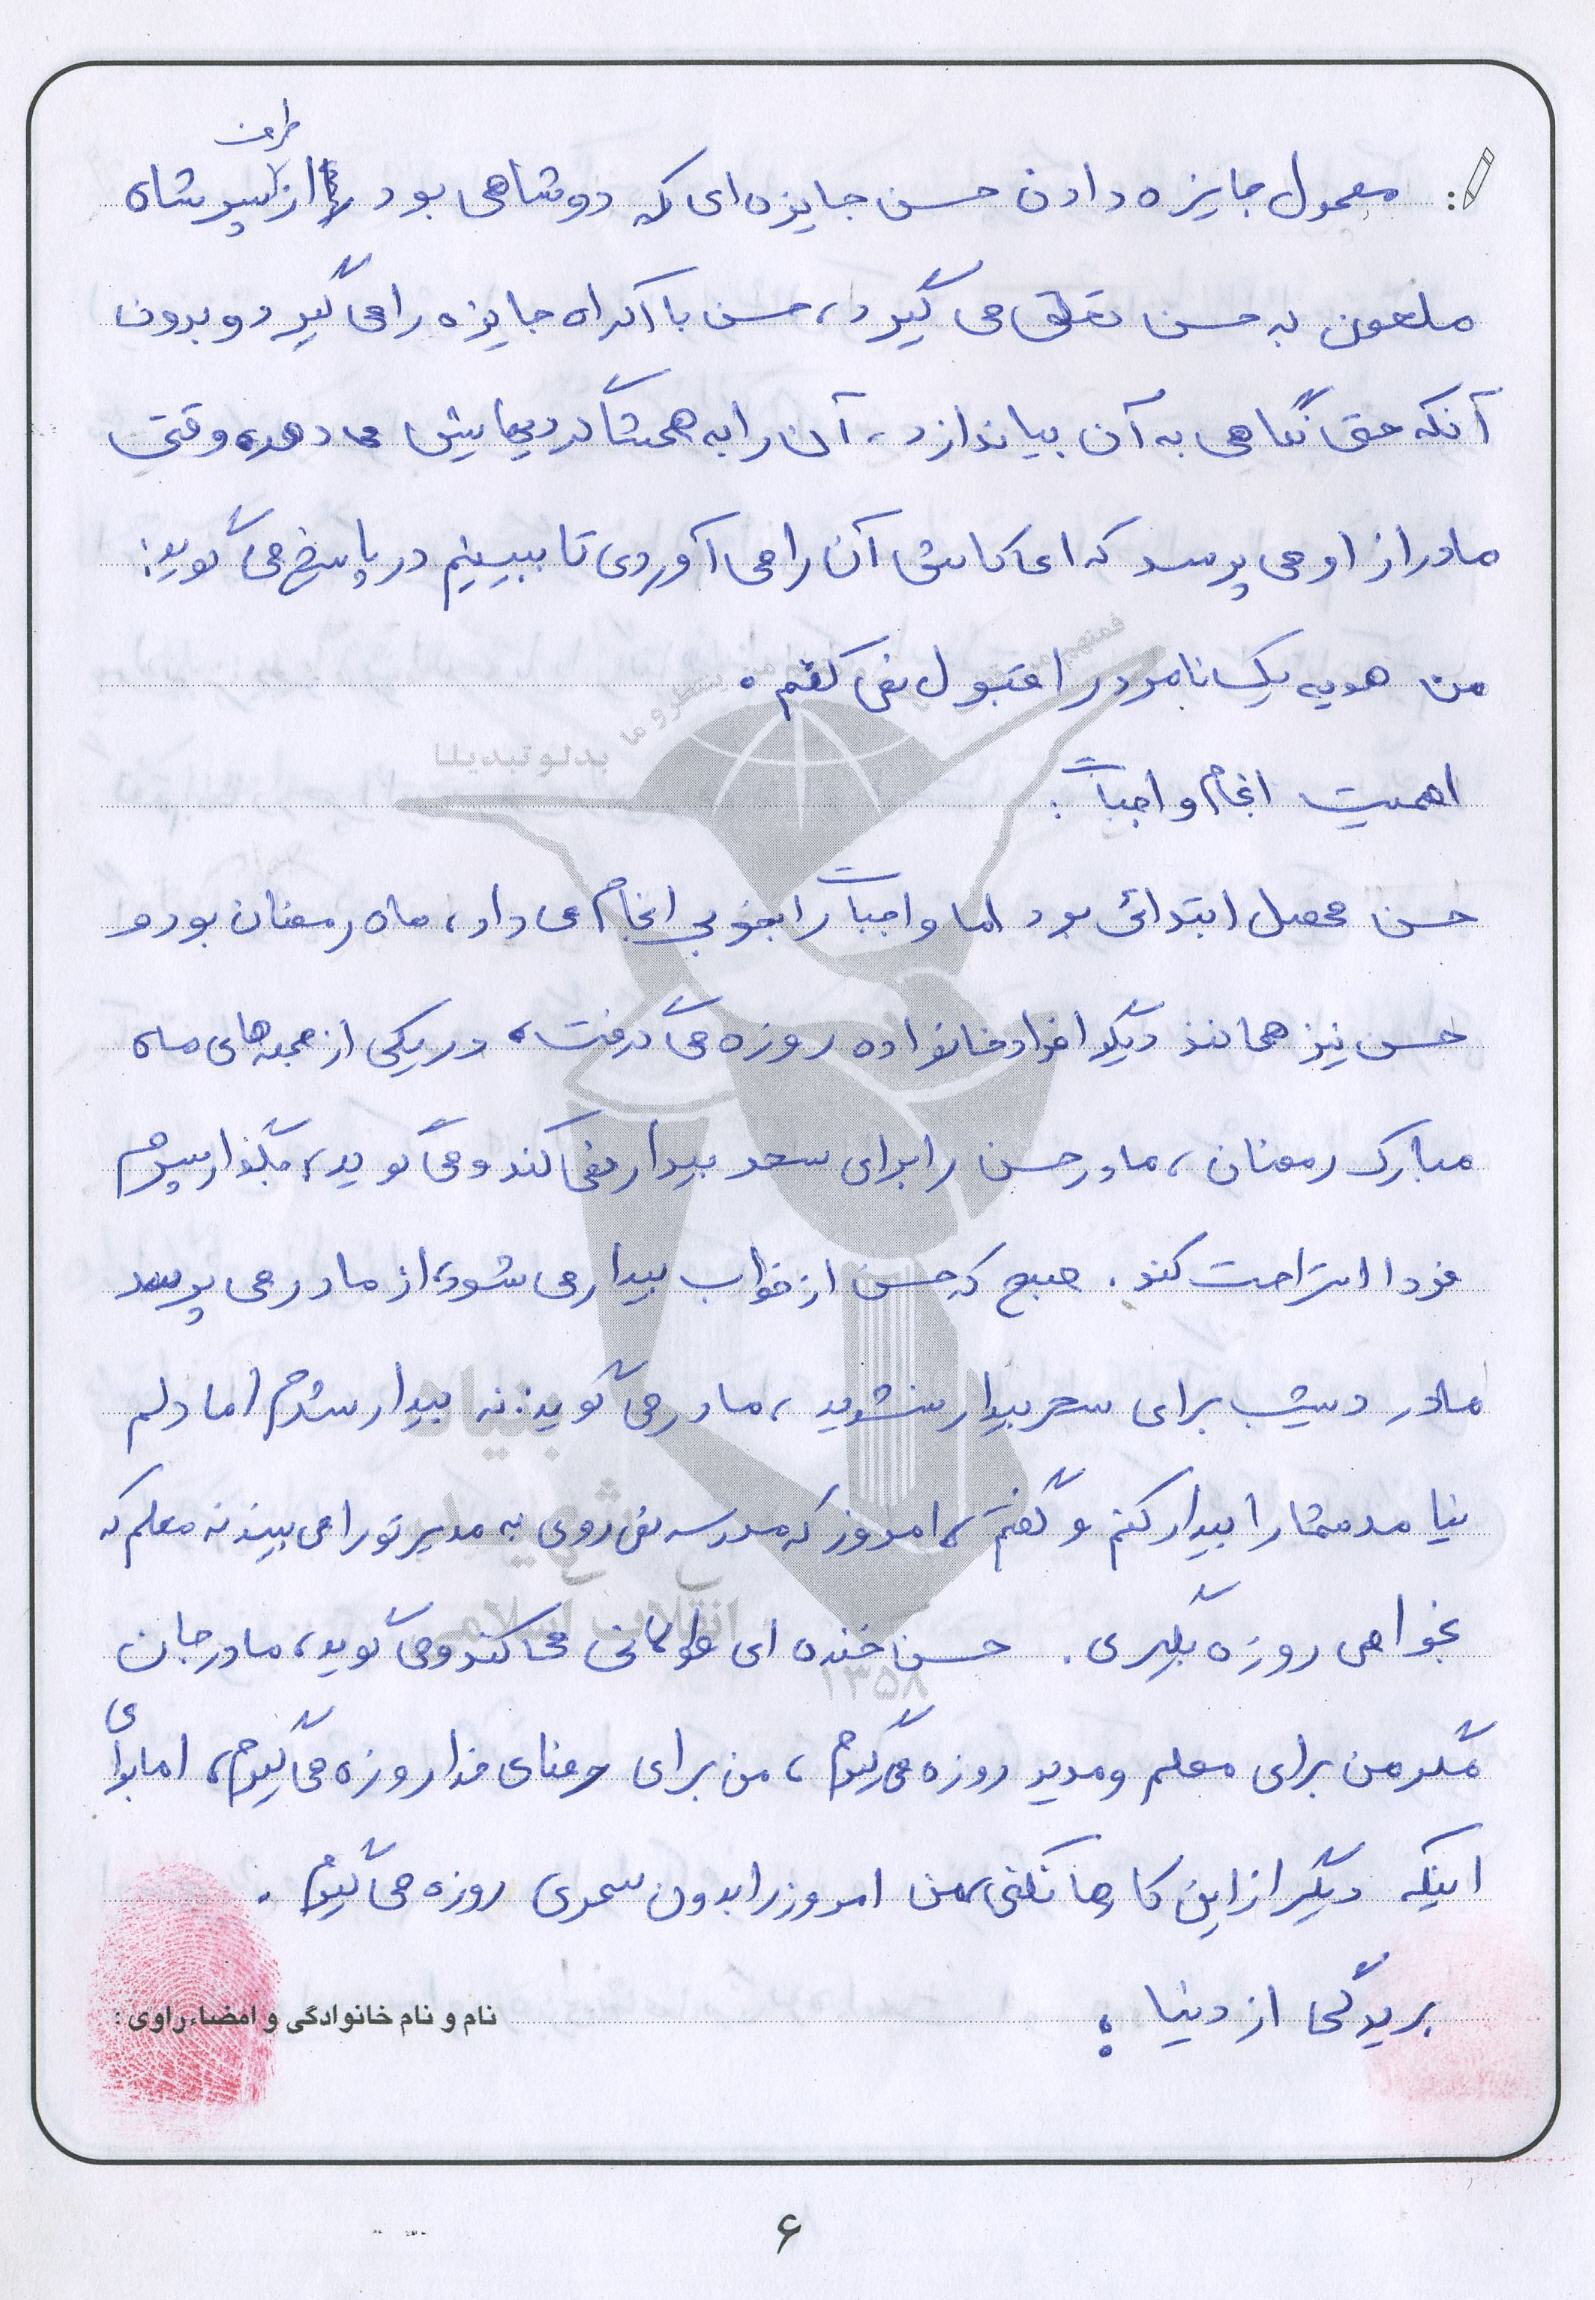 معمول جایزه دادن حسن جایزه‌ای که دوشاهی بود از طرف پسر شاه
ملعون به حسن تعلق می گیرد، حسن با اکراه جایزه را می گیرد و بدون
آنکه حتی نگاهی به آن بیاندازد، آن را به همشاگردیهایش می دهد، وقتی
مادر از او می پرسد که ای کاش آن را می آوردی تا ببینیم در پاسخ می گوید:
من هدیه یک نامرد را قبول نمی کنم.
اهمیت انجام واجبات:
حسن محصل ابتدائی بود اما واجبات را بخوبی انجام می داد، ماه رمضان بود و
حسن نیز همانند دیگر افراد خانواده روزه می گرفت، در یکی از جمعه های ماه
مبارک رمضان، مادر حسن را برای سحر بیدار نمی کند و می گوید، بگذار پسرم
فردا استراحت کند. صبح که حسن از خواب بیدار می شود، از مادر می پرسد
مادر دیشب برای سحر بیدار نشدید، مادر می گوید: نه بیدار شدم اما دلم
نیامد شما را بیدار کنم و گفتم، امروز که مدرسه نمی روی نه مدیر تو را می بیند نه معلم که
بخواهی روزه بگیری. حسن خنده ای طولانی می کند و می گوید، مادر جان
مگر من برای معلم و مدیر روزه می گیرم، من برای رضای خدا روزه می گیرم، اما برای
اینکه دیگر از این کارها نکنی، من امروز را بدون سحری روزه می گیرم.
بریدگی از دنیا:
نام و نام خانوادگی و امضاء راوی:
بنیاد
شهید
انقلاب اسلامی
۱۳۵۸
۶